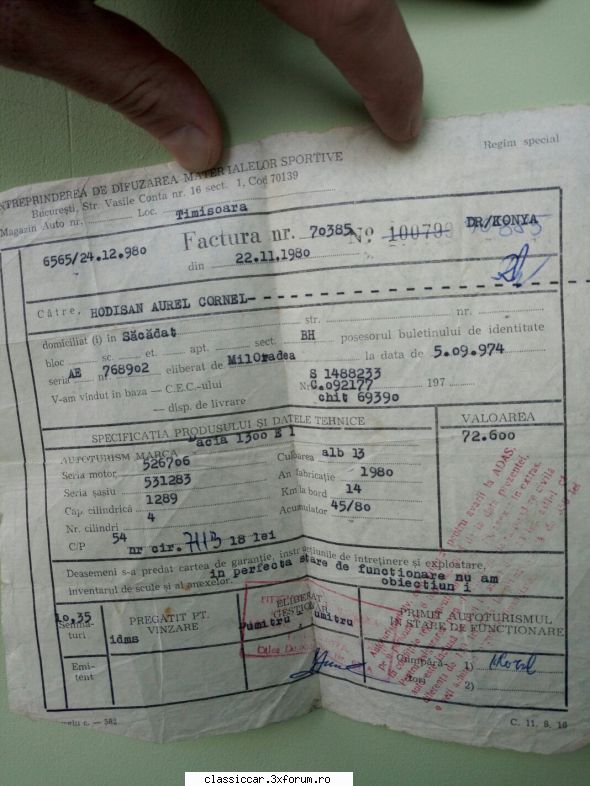 Regim special
INTREPRINDEREA DE DIFUZAREA MATERIALELOR SPORTIVE
București, Str. Vasile Conta nr. 16 sect. 1, Cod 70139
Magazin Auto nr. Loc. Timisoara
6565/24.12.980 Factura nr. 70385 Nº 100793 DR/KONYA
din 22.11.1980
Către, HODISAN AUREL CORNEL
domiciliat (i) în Săcădat str. nr.
bloc sc. et. apt. sect. BH posesorul buletinului de identitate
seria AE 768902 eliberat de MilOradea la data de 5.09.974
V-am vindut in baza — C.E.C.-ului S 1488233 Nr C.092177 197
— disp. de livrare chit 69390
SPECIFICAȚIA PRODUSULUI ȘI DATELE TEHNICE VALOAREA
AUTOTURISM MARCA acia 1300 E 1 72.600
Seria motor 526706 Culoarea alb 13
Seria șasiu 531283 An fabricație 1980
Cap. cilindrică 1289 Km la bord 14
Nr. cilindri 4 Acumulator 45/80
C/P 54 nr cir. 7113 18 lei
Deasemeni s-a predat cartea de garanție, instrucțiunile de întreținere și exploatare,
inventarul de scule și al anexelor. in perfecta stare de functionare nu am
obiectiun i
10.35
Semnături PREGATIT PT. VINZARE ELIBERAT GESTIONAR PRIMIT AUTOTURISMUL IN STARE DE FUNCȚIONARE
idms Dumitru Dumitru
Emitent Cumpărători 1)
2)
c. — 562 C. 11. 8. 16
classiccar.3xforum.ro